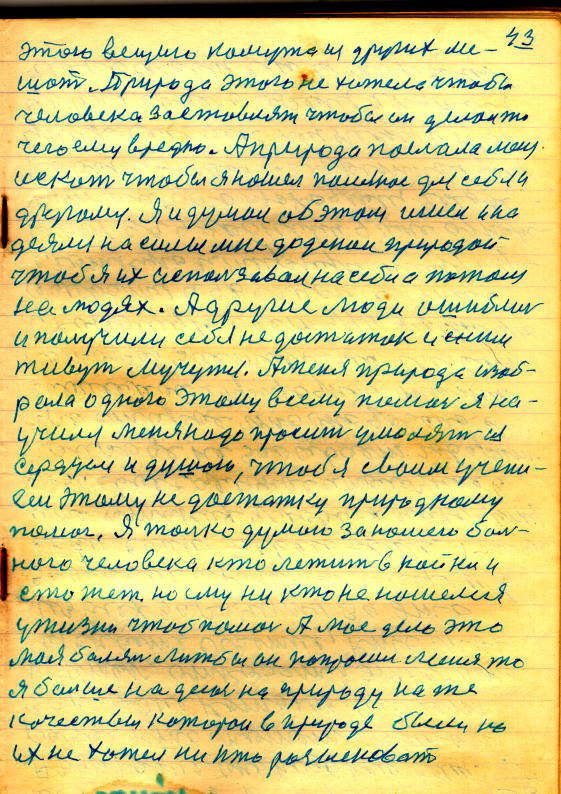 43
этого вещего кому та и других ме-
шот. Природа этого не хотела чтобы
человека заставлят чтобы он делал то
чего ему вредно. А природа послала меня
искат чтобы я нашел полезное для себя и
другому. Я и думал об этом имел и на
деялся на силы мне доделаи природой
чтоб я их использавал на себи а потом
на людях. А другие люди ошиблис
и получили себя не достаток и с ним
живут мучуть. А меня природа изоб-
рала одного этому всему помог я на-
учился меня надо просит умолят
сердцем и душою, чтоб я своим учени-
ем этому не достатку природному
помог. Я толко думаю за нашего бол-
ного человека кто лежит в койки и
стожет но ему ни кто не нашелся
у жизни чтоб помог А мое дело это
моя болят лишбы он попросил меня то
я болше надеюс на природу на те
качествы которои в природе были но
их не хотел ни кто разысковат